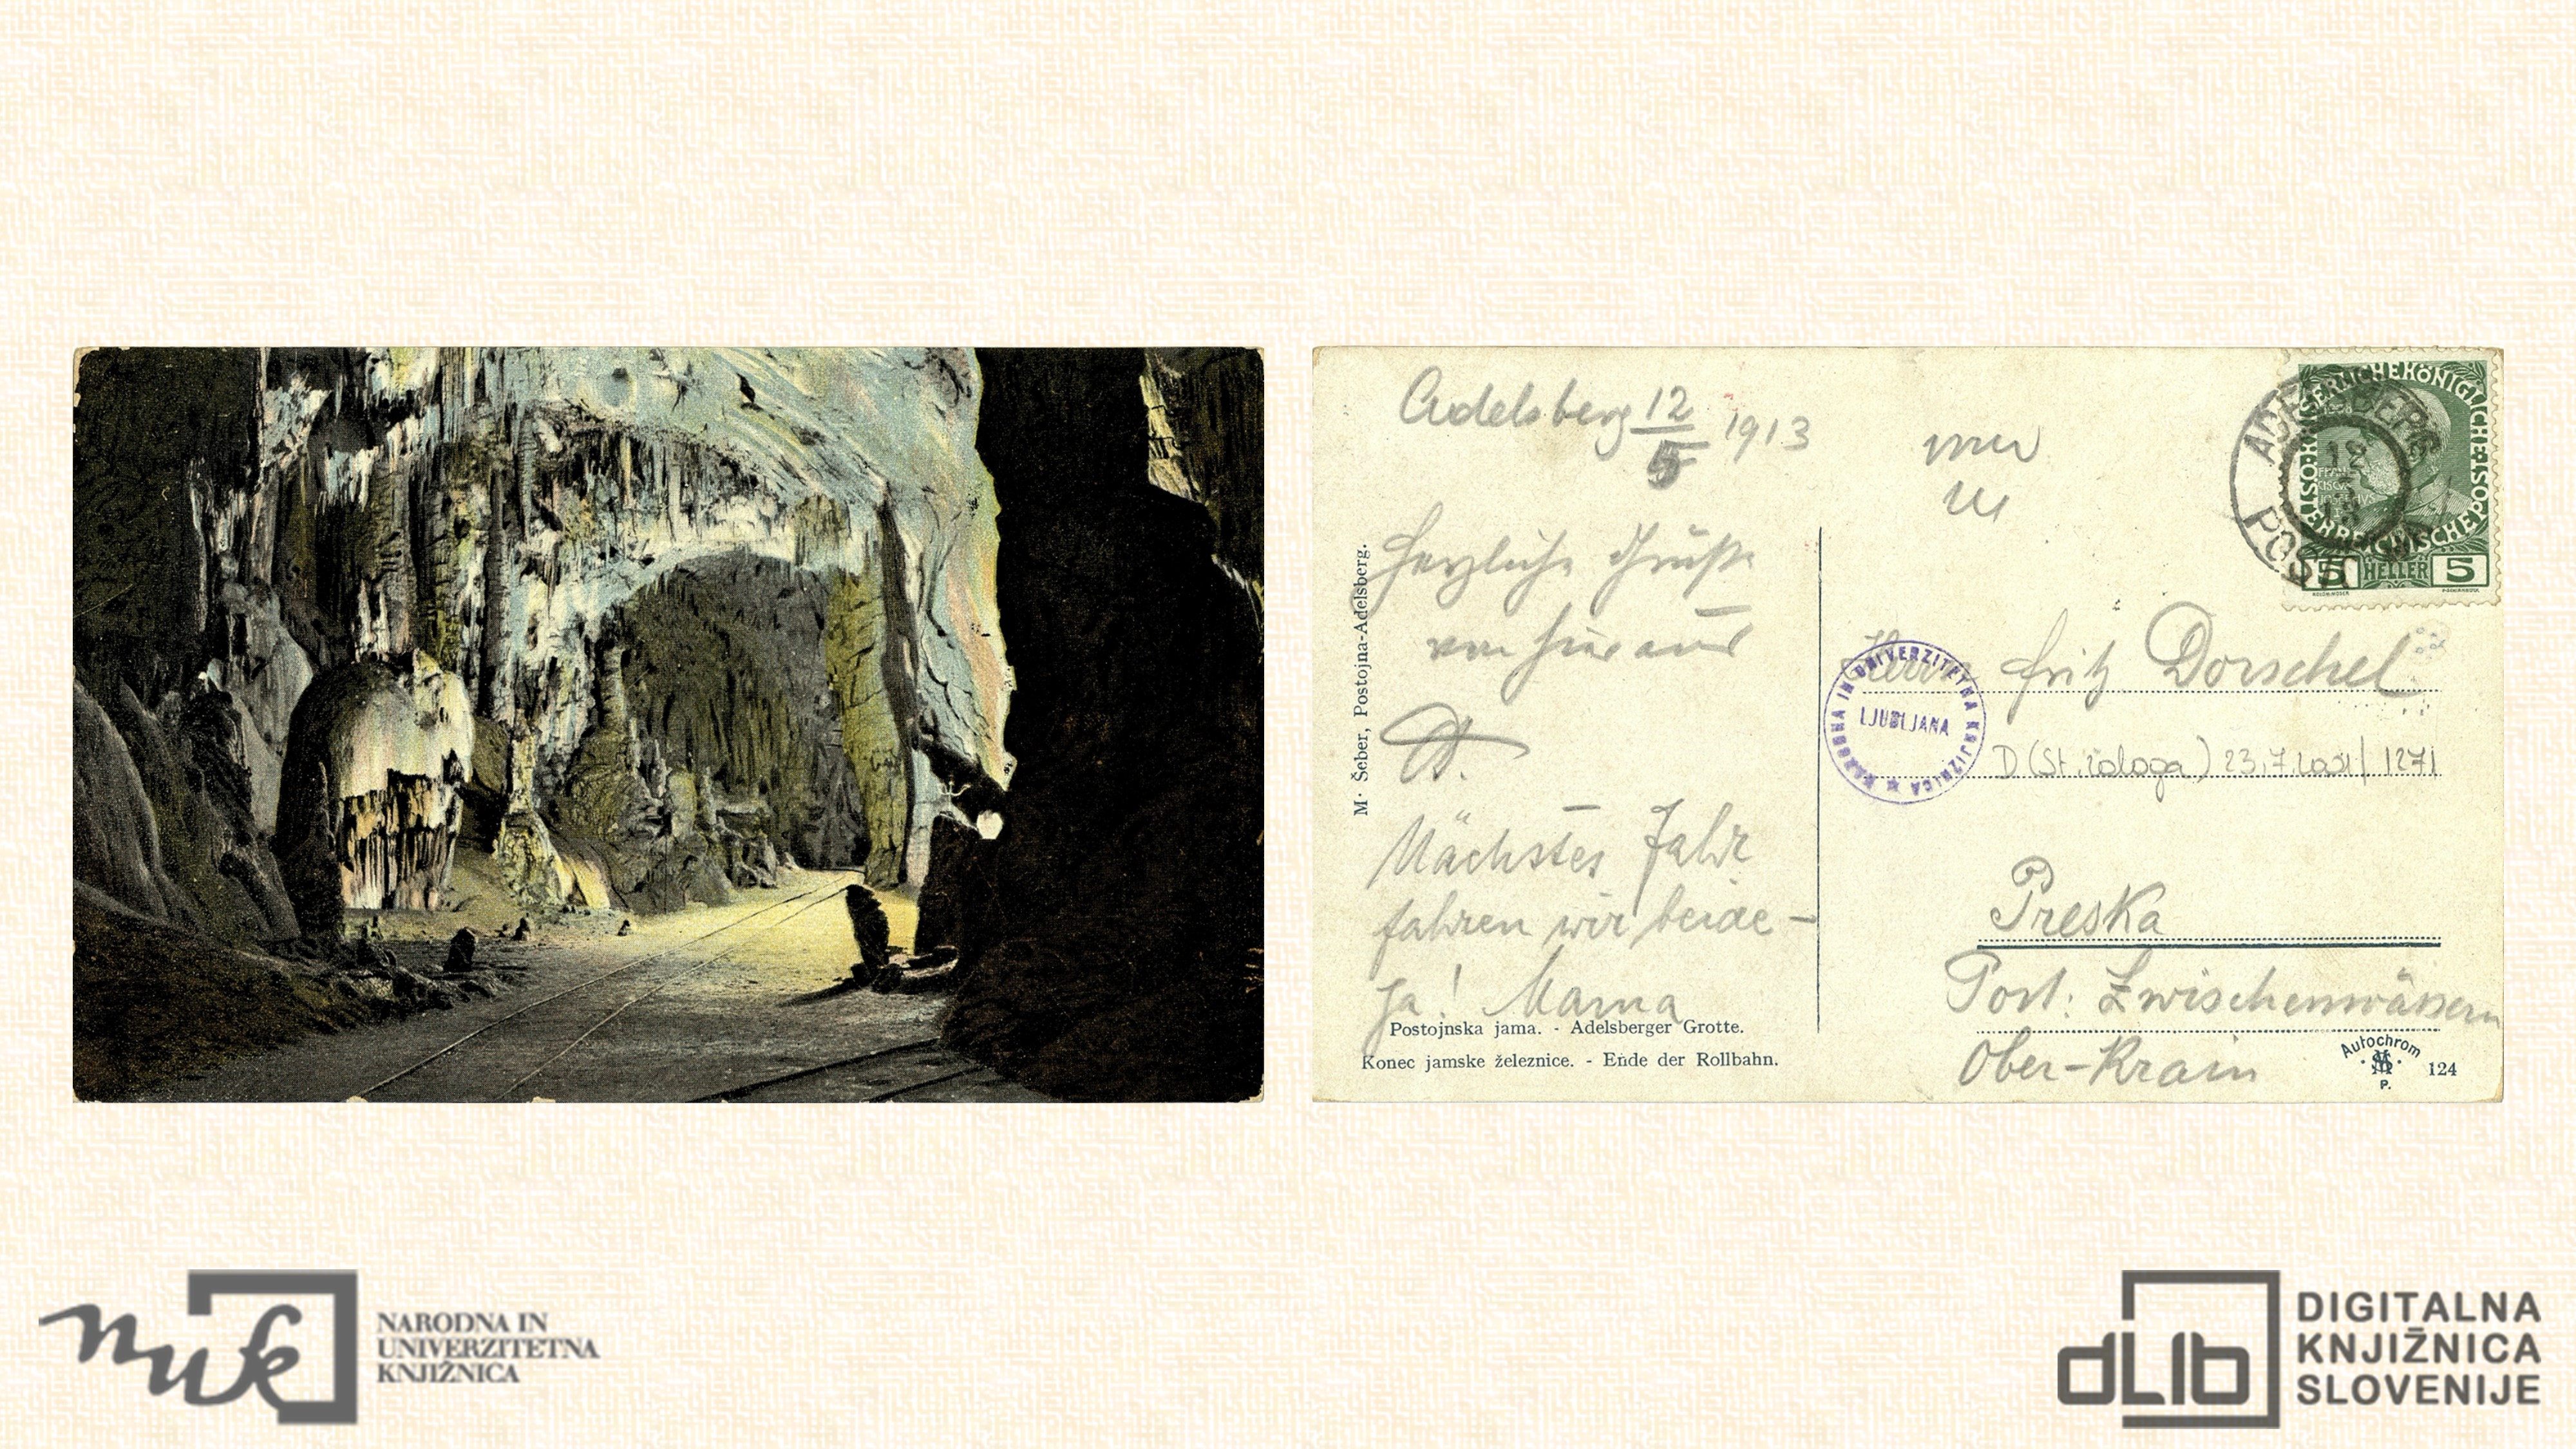 Adelsberg 12/5 1913
Herzliche Grüße
von hier aus
Nächstes Jahr
fahren wir beide -
ja! Mama
M. Šeber, Postojna-Adelsberg.
Postojnska jama. - Adelsberger Grotte.
Konec jamske železnice. - Ende der Rollbahn.
KAISERLICHE KÖNIGLICHE ÖSTERREICHISCHE POST
5 HELLER 5
ADELSBERG
12
POSTOJNA
Herrn Fritz Dorschel
NARODNA IN UNIVERZITETNA KNJIŽNICA
LJUBLJANA
D (St. zaloga) 23.7.2021 / 1271
Preska
Post: Zwischenwässern
Ober-Krain
Autochrom
P.
124
nuk
NARODNA IN
UNIVERZITETNA
KNJIŽNICA
dLib
DIGITALNA
KNJIŽNICA
SLOVENIJE